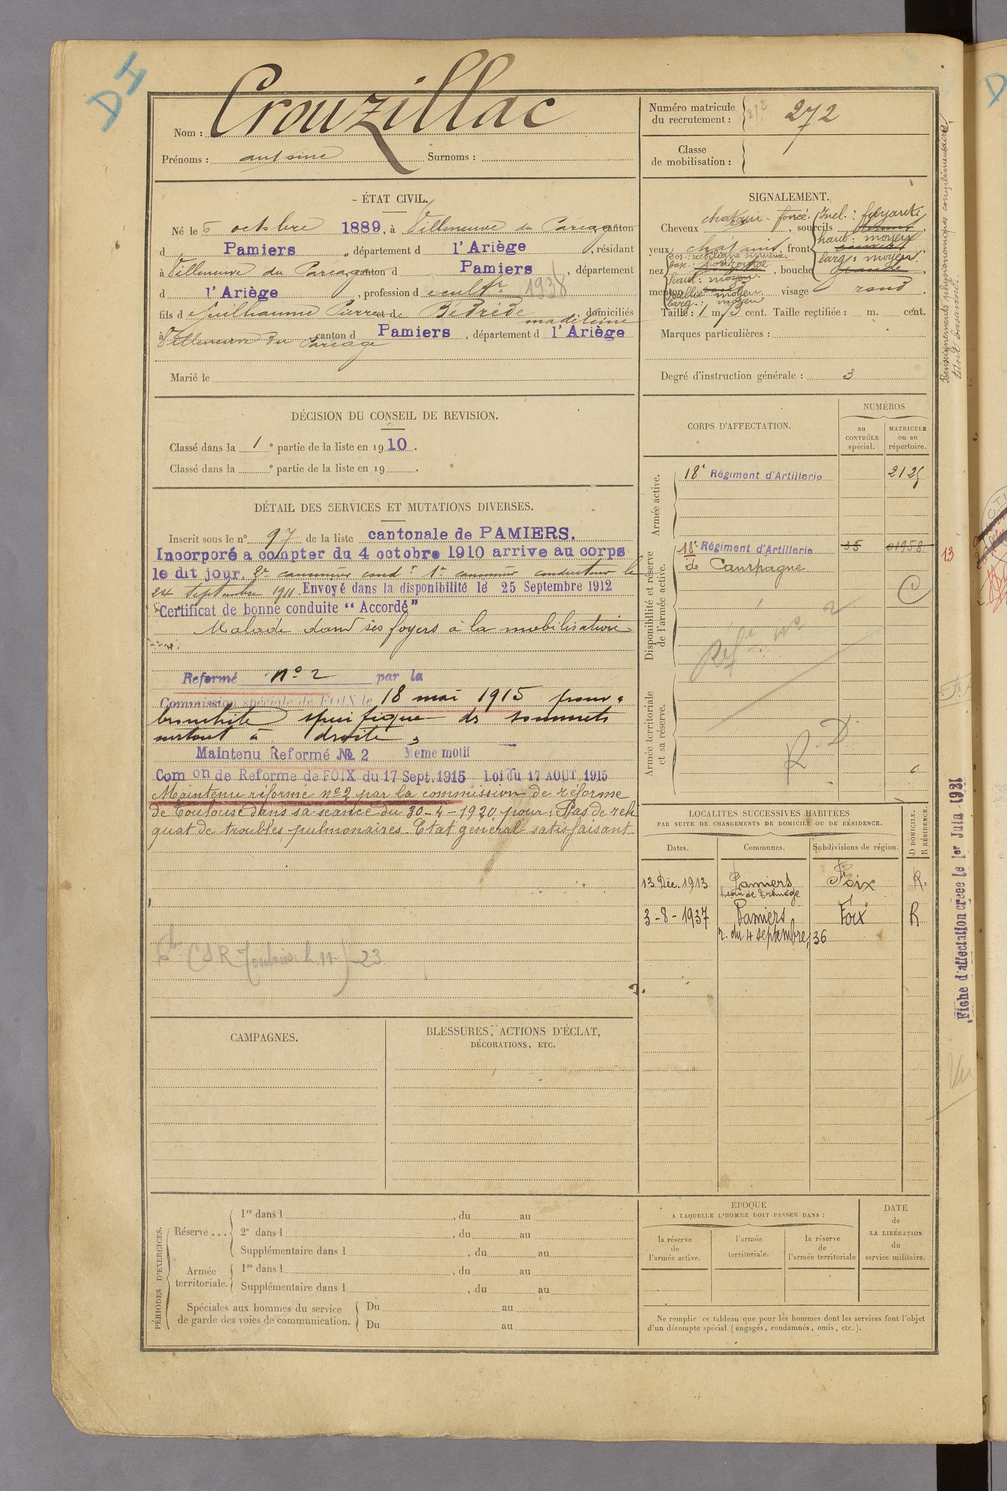 DI
Nom : Crouzillac
Prénoms : antoine Surnoms :
Numéro matricule du recrutement : 272
Classe de mobilisation :
ÉTAT CIVIL.
Né le 6 octobre 1889, à Villeneuve du Pareage canton
d Pamiers, département d l'Ariège, résidant
à Villeneuve du Pareage canton d Pamiers, département
d l'Ariège, profession d cultr 1938
fils d Guilhaume Pierre et de Bédrède madeleine, domiciliés
à Villeneuve du Pareage canton d Pamiers, département d l'Ariège
Marié le
SIGNALEMENT.
Cheveux chatain foncé, sourcils
yeux chatains, front
Incl : fuyante
haut : moyen
larg : moyen
nez, bouche
dos : rectiligne
haut : moyen
larg : moyen
menton visage rond
Taille : 1 m. cent. Taille rectifiée : m. cent.
Marques particulières :
Degré d'instruction générale : 3
Renseignements physionomiques complémentaires
DÉCISION DU CONSEIL DE REVISION.
Classé dans la 1e partie de la liste en 1910.
Classé dans la e partie de la liste en 19 .
DÉTAIL DES SERVICES ET MUTATIONS DIVERSES.
Inscrit sous le n° 97 de la liste cantonale de PAMIERS.
Incorporé a compter du 4 octobre 1910 arrive au corps
le dit jour. 2e canonnier condr 1e canonnier conducteur le
24 Septembre 1911. Envoyé dans la disponibilité le 25 Septembre 1912
Certificat de bonne conduite "Accordé"
Malade dans ses foyers à la mobilisation
Reformé n° 2 par la
Commission spéciale de FOIX le 18 mai 1915 pour
bronchite spécifique des sommets
surtout à droite
Maintenu Reformé № 2 Meme motif
Com on de Reforme de FOIX du 17 Sept. 1915 Loi du 17 AOUT 1915
Maintenu réformé n° 2 par la commission de réforme
de Toulouse dans sa séance du 30-4-1920 pour : Pas de reli
quat de troubles pulmonaires. Etat général satisfaisant
CORPS D'AFFECTATION.
NUMÉROS
au CONTRÔLE spécial.
MATRICULE ou au répertoire.
Armée active.
18e Régiment d'Artillerie 2125
Disponibilité et réserve de l'armée active.
18e Régiment d'Artillerie 01958
de Campagne
C
Réfé n° 2
Armée territoriale et sa réserve.
R.D.
LOCALITÉS SUCCESSIVES HABITÉES
PAR SUITE DE CHANGEMENTS DE DOMICILE OU DE RÉSIDENCE.
Dates. Communes. Subdivisions de région. D DOMICILE. R RÉSIDENCE.
13 Déc. 1913 Pamiers Foix R.
3-8-1937 Pamiers Foix R
r. du 4 septembre, 36
Fiche d'affectation créée le 1er Juin 1931
CAMPAGNES.
BLESSURES, ACTIONS D'ÉCLAT,
DÉCORATIONS, ETC.
PÉRIODES D'EXERCICES.
Réserve ... 1re dans l , du au
2e dans l , du au
Supplémentaire dans l , du au
Armée territoriale. 1re dans l , du au
Supplémentaire dans l , du au
Spéciales aux hommes du service de garde des voies de communication. Du au
Du au
EPOQUE
A LAQUELLE L'HOMME DOIT PASSER DANS :
la réserve de l'armée active.
l'armée territoriale.
la réserve de l'armée territoriale
DATE de LA LIBÉRATION du service militaire.
Ne remplir ce tableau que pour les hommes dont les services font l'objet
d'un décompte spécial (engagés, condamnés, omis, etc.).